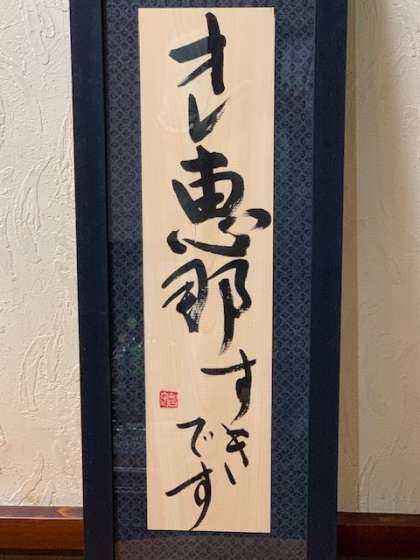 オレ恵那すきです